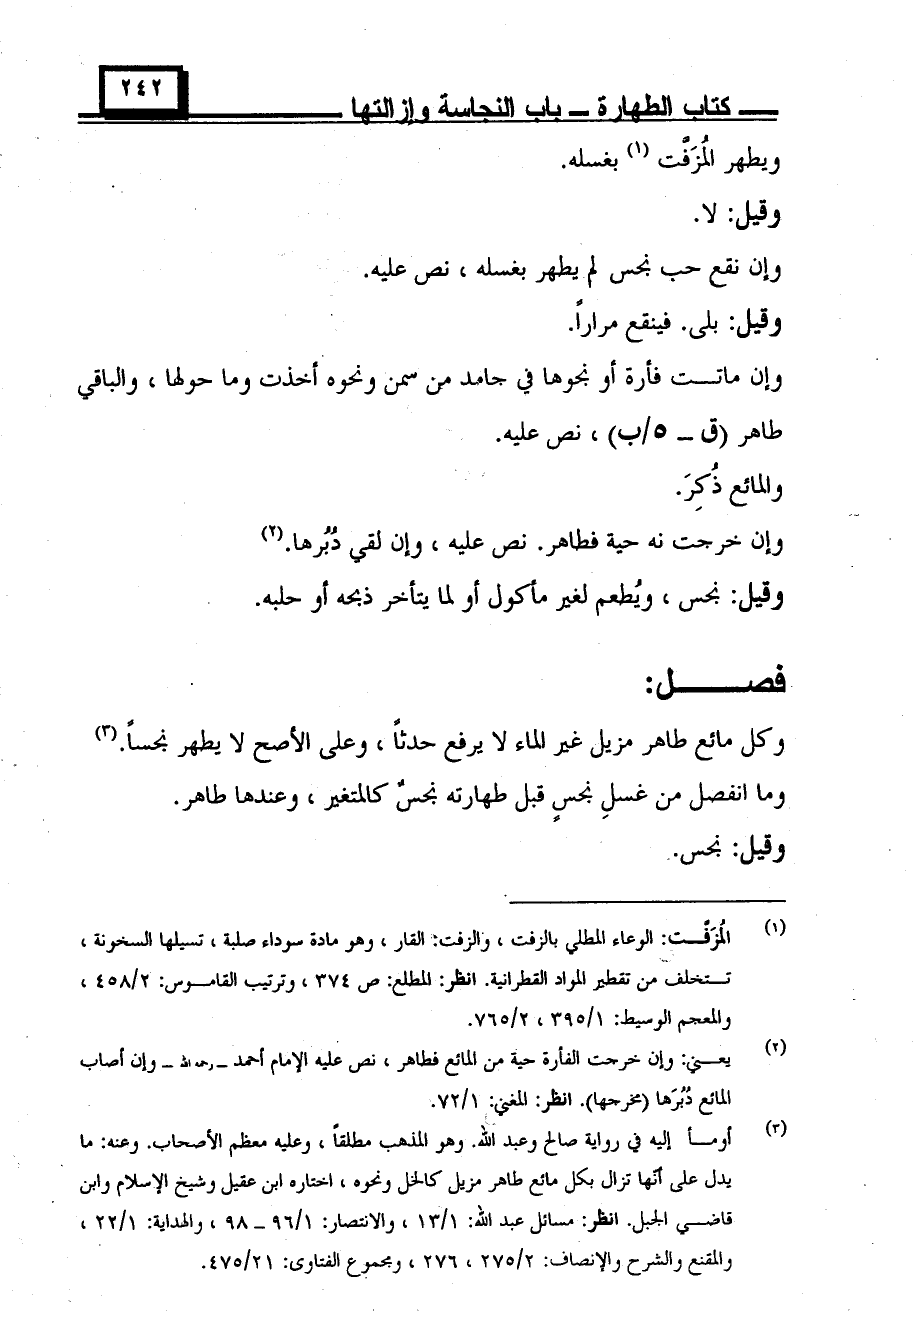 ٢٤٢
كتاب الطهارة ــ باب النجاسة وإزالتها
ويطهر المُزَفَّت (١) بغسله.
وقيل: لا.
وإن نقع حب نجس لم يطهر بغسله ، نص عليه.
وقيل: بلى. فينقع مراراً.
وإن ماتت فأرة أو نحوها في جامد من سمن ونحوه أخذت وما حولها ، والباقي
طاهر (ق ــ ٥/ب) ، نص عليه.
والمائع ذُكِرَ.
وإن خرجت نه حية فطاهر. نص عليه ، وإن لقي دُبُرها.(٢)
وقيل: نجس ، ويُطعم لغير مأكول أو لما يتأخر ذبحه أو حلبه.
فصل:
وكل مائع طاهر مزيل غير الماء لا يرفع حدثاً ، وعلى الأصح لا يطهر نجساً.(٣)
وما انفصل من غسلِ نجسٍ قبل طهارته نجسٌ كالمتغير ، وعندها طاهر.
وقيل: نجس.
(١) المُزَفَّت: الوعاء المطلي بالزفت ، والزفت: القار ، وهو مادة سوداء صلبة ، تسيلها السخونة ،
تستخلف من تقطير المواد القطرانية. انظر: المطلع: ص ٣٧٤ ، وترتيب القاموس: ٤٥٨/٢ ،
والمعجم الوسيط: ٣٩٥/١ ، ٧٦٥/٢.
(٢) يعني: وإن خرجت الفأرة حية من المائع فطاهر ، نص عليه الإمام أحمد ــ رحمه الله ــ وإن أصاب
المائع دُبُرَها (مخرجها). انظر: المغني: ٧٢/١.
(٣) أومأ إليه في رواية صالح وعبد الله. وهو المذهب مطلقاً ، وعليه معظم الأصحاب. وعنه: ما
يدل على أنّها تزال بكل مائع طاهر مزيل كالخل ونحوه ، اختاره ابن عقيل وشيخ الإسلام وابن
قاضي الجبل. انظر: مسائل عبد الله: ١٣/١ ، والانتصار: ٩٦/١ ــ ٩٨ ، والهداية: ٢٢/١ ،
والمقنع والشرح والإنصاف: ٢٧٥/٢ ، ٢٧٦ ، ومجموع الفتاوى: ٤٧٥/٢١.